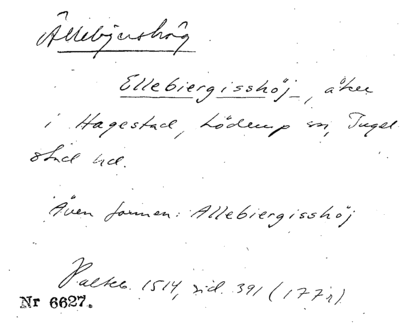 Ällebjershög
Ellebiergisshöj, åker
i Hagestad, Löderup sn, Ingel
stad hd.
Även formen: Allebiergisshöj
Palteb. 1514, sid. 391 (177r)
Nr 6627.